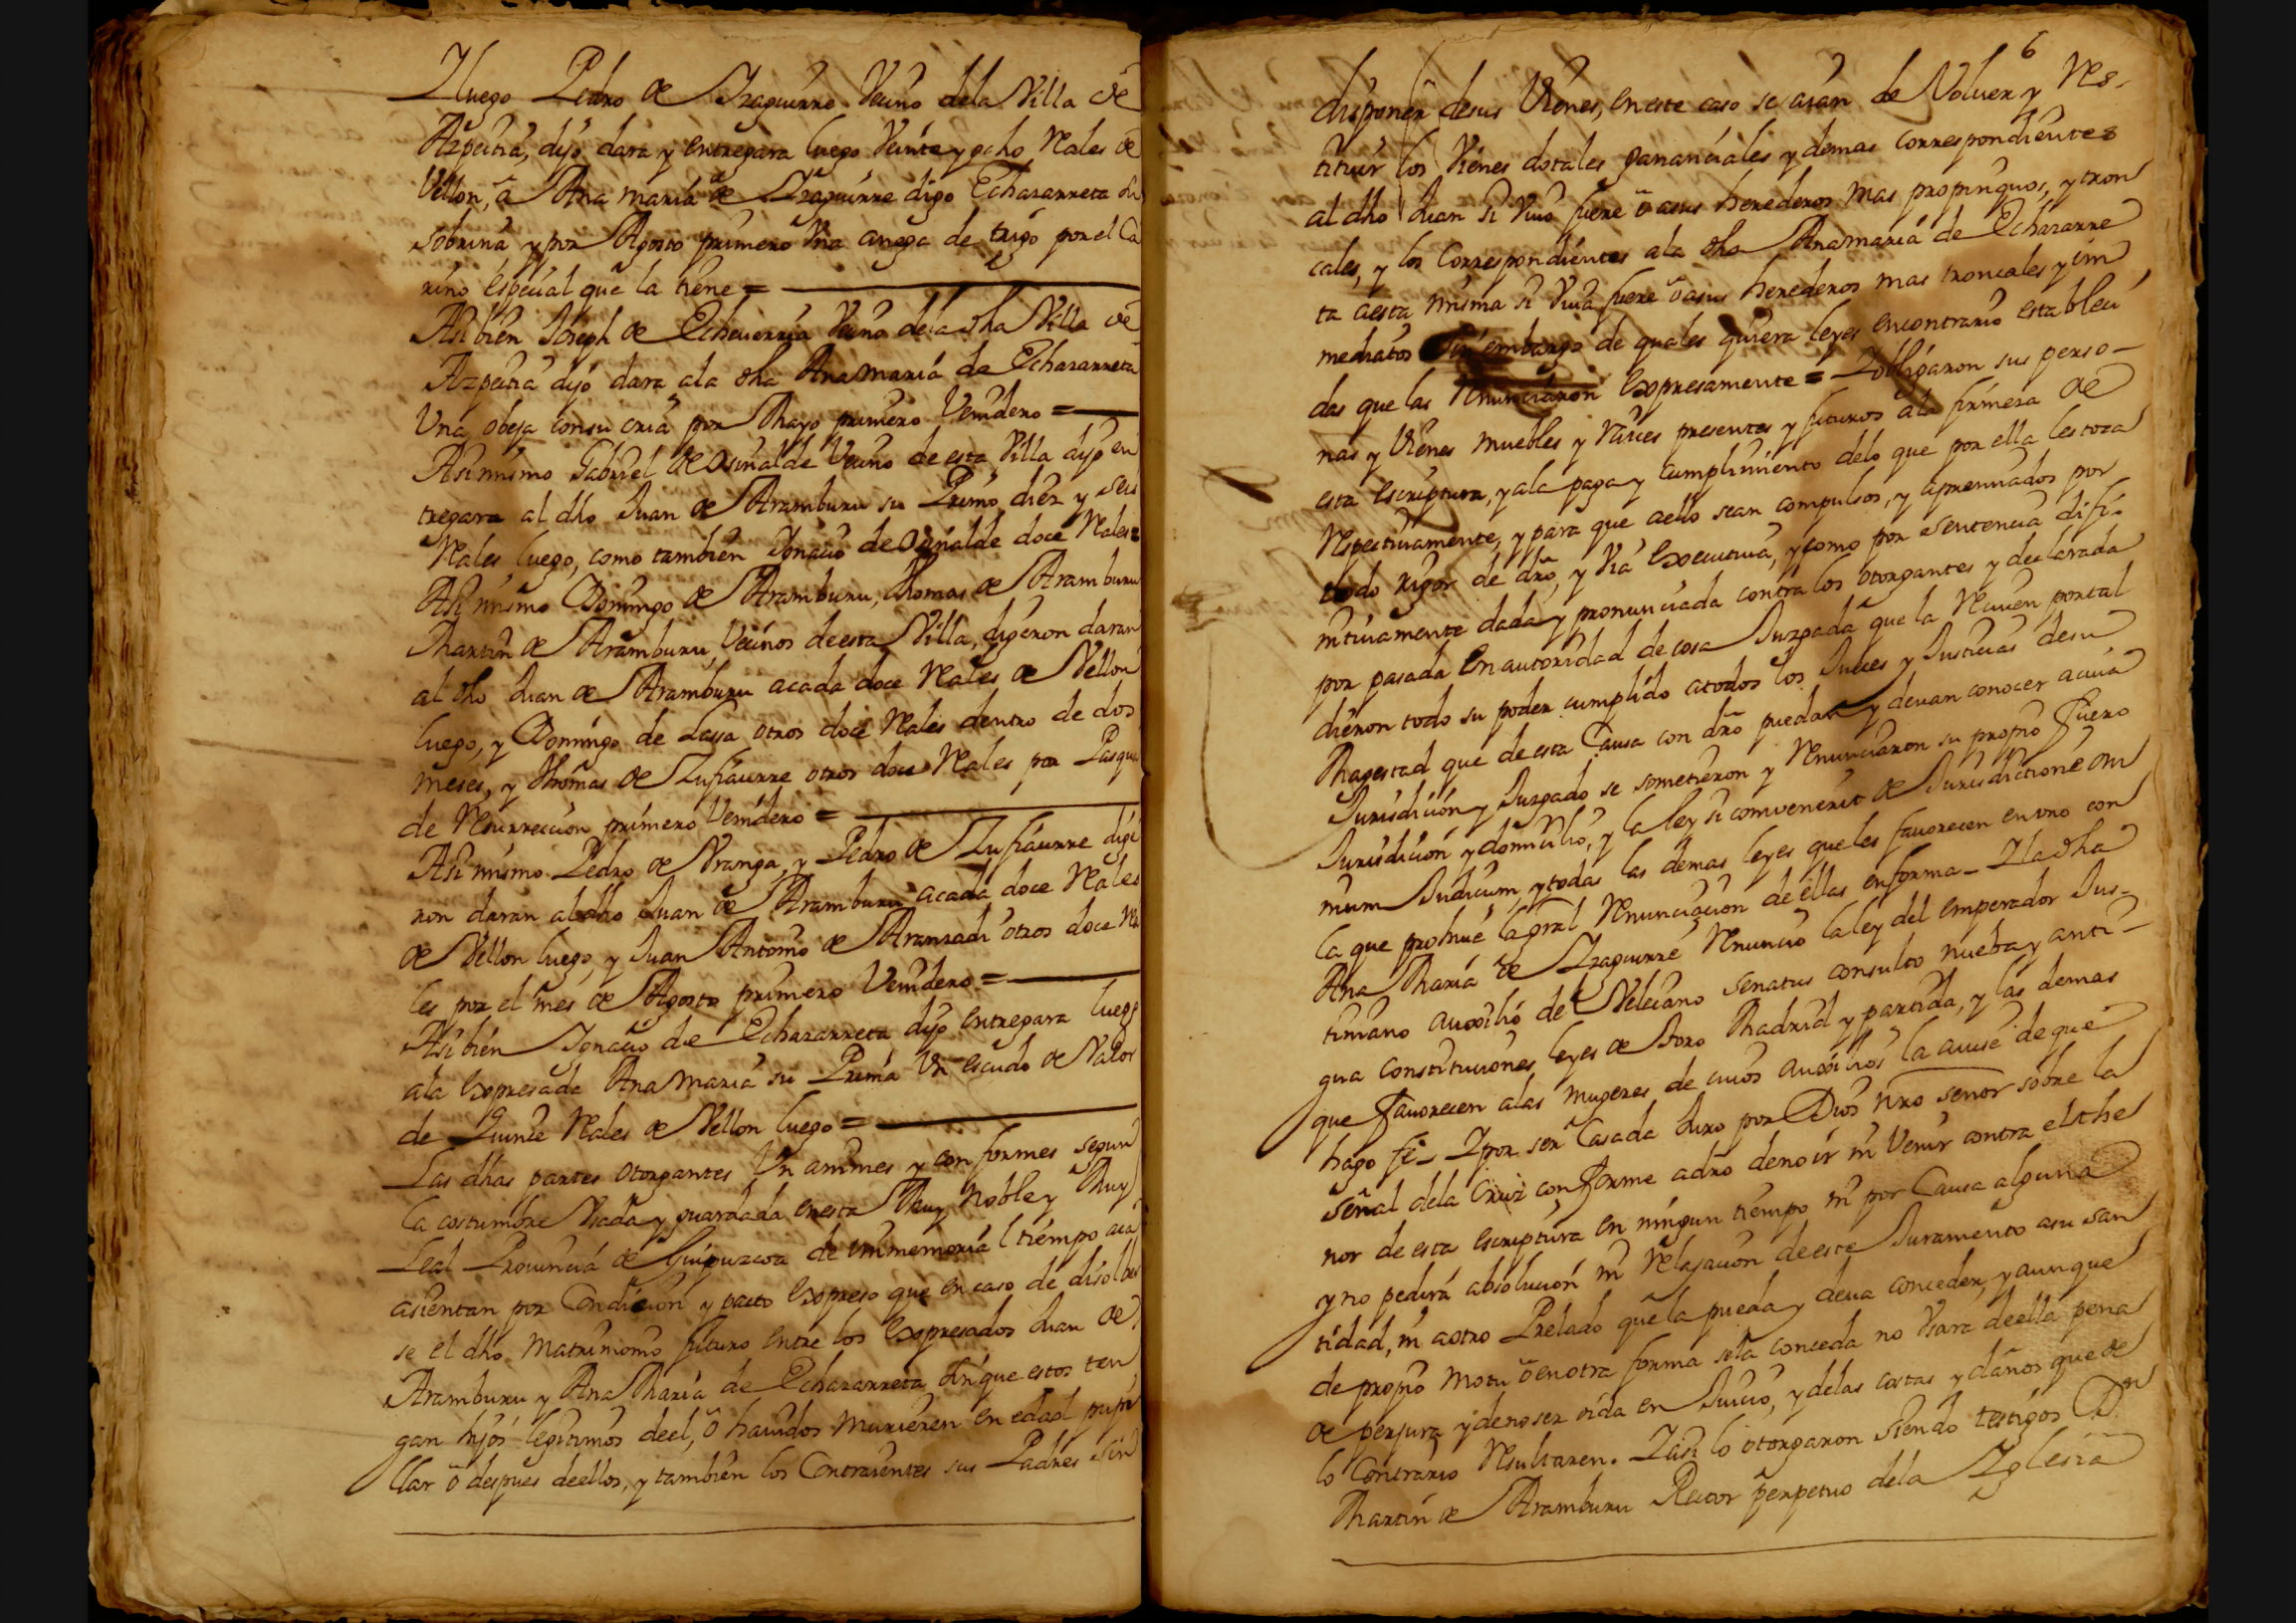 Y luego Pedro de Yzaguirre Vecino dela Villa de
Azpeitia, dijo dara y entregara luego Veinte y ocho Reales de
Vellon, â Ana maria de Yzaguirre digo Echazarreta su
sobrina, y por Agosto primero Vna anega de trigo por el Ca
riño Especial que la tiene =
Asi bien Joseph de Echeverria Vecino dela dha Villa de
Azpeitia dijo dara ala dha Ana Maria de Echazarreta
Una obeja consu cria por Mayo primero Venidero =
Asi mismo Gabriel de Osinalde Vecino de esta Villa dijo en
tregara al dho Juan de Aramburu su Primo diez y seis
Reales luego, como tambien Ignacio de Osinalde doce Reales =
Asi mismo Domingo de Aramburu, Thomas de Aramburu
Martin de Aramburu, Vecinos de esta Villa, digeron daran
al dho Juan de Aramburu acada doce Reales de Vellon
luego, y Domingo de Lasa otros doce Reales dentro de dos
meses, y Thomas de Zufiaurre otros doce Reales por Pasqua
de Resurreccion primero Venidero =
Asi mismo Pedro de Vranga, y Pedro de Zufiaurre dige
ron daran al dho Juan de Aramburu acada doce Reales
de Vellon luego, y Juan Antonio de Aranzadi otros doce Rea
les por el mes de Agosto primero Venidero =
Asi bien Ignacio de Echazarreta dijo entregara luego
ala Expresada Ana Maria su Prima Vn escudo de Valor
de Quince Reales de Vellon luego =
Las dhas partes otorgantes Vn animes y con formes segun
la costumbre Vsada y guardada en esta Muy Noble y Muy
Leal Provincia de Guipuzcoa de immemorial tiempo aca
asientan por Condicion y pacto Expreso que en caso de disolber
se el dho Matrimonio futuro entre los Expresados Juan de
Aramburu y Ana Maria de Echazarreta sin que estos ten
gan hijos legitimos de el, ô havidos murieren en edad pupi
llar ô despues de ellos, y tambien los Contraientes sus Padres sin
6
disponer de sus Vienes, en este caso se aian de Volver y Res-
tituir los Vienes dotales gananciales y demas correspondientes
al dho Juan si Vivo fuere ô asus herederos mas propinquos, y tron
cales, y los Correspondientes ala dha Ana maria de Echazarre
ta aesta misma si Viva fuere ô asus herederos mas troncales y im
mediatos Sin embargo de quales quiera leyes encontrario estableci
das que las Renunciaron Expresamente = Y obligaron sus perso-
nas y Vienes muebles y raices presentes y futuros ala firmeza de
esta escriptura, y ala paga y cumplimiento delo que por ella les toca
Respectivamente, y para que aello sean compulsos, y apremiados por
todo rigor de dro, y Via Executiva, y como por sentencia difi-
nitivamente dada y pronunciada contra los otorgantes y declarada
por pasada En autoridad de cosa Juzgada que la Reciven portal
dieron todo su poder cumplido atodos los Jueces y Justicias desu
Magestad que de esta Causa con dro puedan y devan conocer acuia
Jurisdicion y Juzgado se sometieron y Renunciaron su propio fuero
Jurisdicion y domicilio, y la ley si convenerit de Jurisdictione om
nium Judicum, y todas las demas leyes que les favorecen en vno con
la que prohive la gral Renunciacion de ellas en forma - Y la dha
Ana Maria de Yzaguirre Renuncio la ley del emperador Jus-
tiniano auxilio de Veleiano Senatus consulto nueba y anti-
gua constituciones leyes de Toro Madrid y partida, y las demas
que favorecen alas mugeres de cuios auxilios la avise de que
hago fe - Y por ser Casada Juro por Dios nro señor sobre la
señal dela Cruz conforme adro de no ir ni Venir contra el the
nor de esta escriptura en ningun tiempo ni por Causa alguna
y no pedira absolucion ni Relajacion de este Juramento asu san
tidad, ni aotro Prelado que la pueda y deva conceder, y aunque
de propio motu ô en otra forma sela conceda no Vsara de ella pena
de perjura y de no ser oida en Juicio, y de las costas y daños que de
lo contrario Resultaren. Y asi lo otorgaron siendo testigos Dn
Martin de Aramburu Rector perpetuo dela Yglesia